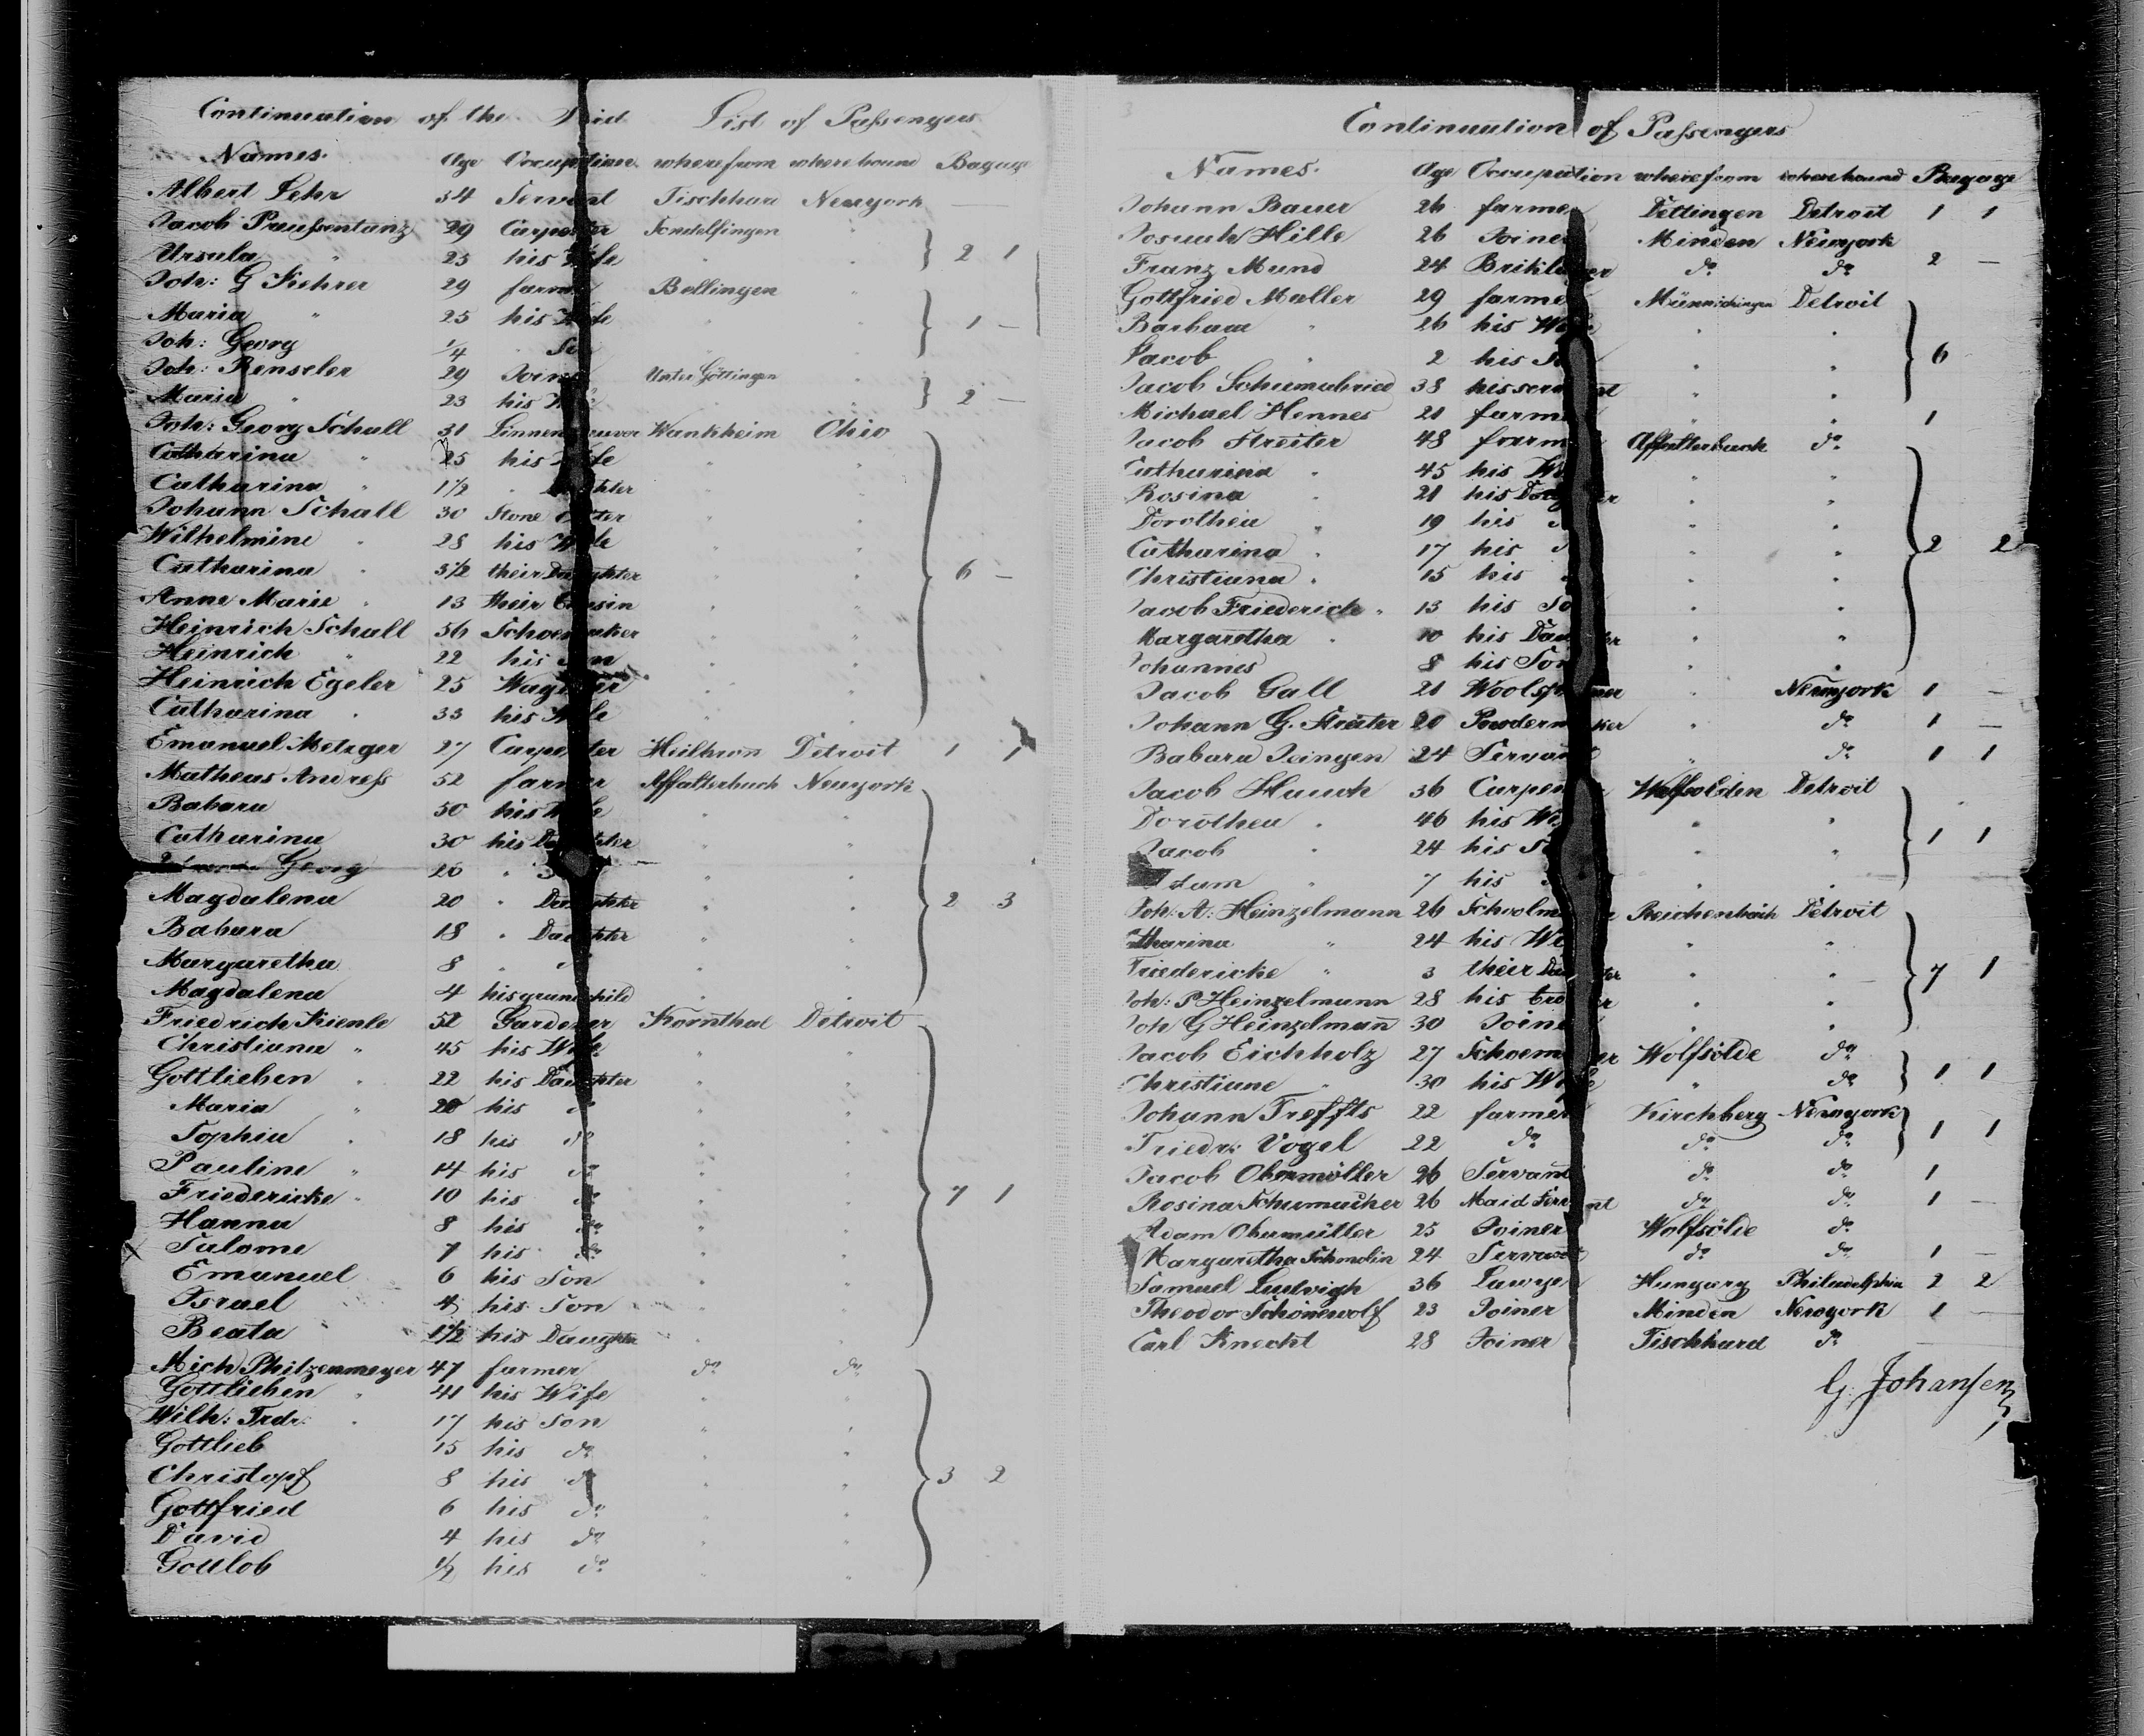 Continuation of the Said List of Passengers
Names. Age Occupation wherefrom where bound Bagage
Albert Lehr 34 Servant Fischhard Newyork —
Jacob Preussentanz 29 Carpenter Sondelfingen "
Ursula " 25 his Wife " " } 2 1
Joh: G Kehrer 29 farmer Bellingen "
Maria " 25 his Wife " " } 1 —
Joh: Georg 1/4 " Son
Joh: Renseler 29 Joiner Unter Göttingen "
Maria " 23 his Wife " " } 2 —
Joh: Georg Schall 31 Linnenweaver Wankheim Ohio
Catharina " 25 his Wife " "
Catharina " 1 1/2 " Daughter
Johann Schall 30 Stone Cutter " "
Wilhelmine " 28 his Wife " "
Catharina " 3 1/2 their Daughter " "
Anne Marie " 13 their Cousin " " } 6 —
Heinrich Schall 56 Schoemaker " "
Heinrich " 22 his Son " "
Heinrich Egeler 25 " "
Catharina " 33 his Wife " "
Emanuel Metzger 27 Carpenter Heilbron Detroit 1 1
Matheus Andress 52 farmer Affalterbach Newyork
Babara 50 his Wife " "
Catharina 30 his Daughter " "
Georg 26 " Son " "
Magdalena 20 " Daughter " " } 2 3
Babara 18 " Daughter " "
Margaretha 8 " do " "
Magdalena 4 his grandchild " "
Friedrich Kienle 52 Gardener Kornthal Detroit
Christiana " 45 his Wife " "
Gottlieben " 22 his Daughter " "
Maria " 20 his do " "
Sophia " 18 his do " "
Pauline " 14 his do " "
Friedericke " 10 his do " " } 7 1
Hanna 8 his do " "
Salome 7 his do " "
Emanuel 6 his Son " "
Israel 4 his Son " "
Beata 1 1/2 his Daughter " "
Mich Philzenmeyer 47 farmer do do
Gottlieben " 41 his Wife " "
Wilh: Frdr: " 17 his Son " "
Gottlieb 15 his do " "
Christopf 8 his do " " } 3 2
Gottfried 6 his do " "
David 4 his do " "
Gottlob 1/2 his do " "
Continuation of Passengers
Names. Age Occupation wherefrom where bound Bagage
Johann Bauer 26 farmer Dettingen Detroit 1 1
Josuah Hille 26 Joiner Minden Newyork
Franz Mund 24 Briklayer do do 2 —
Gottfried Maller 29 farmer Münnichingen Detroit
Barbara " 26 his Wife " "
Jacob " 2 his Son " " } 6
Jacob Schumahried 38 his servant " "
Michael Hennes 21 farmer " " 1
Jacob Streiter 48 farmer Affalterbach do
Catharina " 45 his Wife " "
Rosina " 21 his Daughter " "
Dorothea " 19 his do " "
Catharina " 17 his do " " } 2 2
Christiana " 15 his do " "
Jacob Friederich " 13 his Son " "
Margaretha " 10 his Daughter " "
Johannes 8 his Son " "
Jacob Gall 21 Woolspinner " Newyork 1 —
Johann G. Streiter 20 Powdermaker " do 1 —
Babara Jeingen 24 Servant " do 1 1
Jacob Hauch 36 Carpenter Wolfsolden Detroit
Dorothea " 46 his Wife " "
Jacob " 24 his Son " " } 1 1
Adam " 7 his do " "
Joh: A: Heinzelmann 26 Schoolmaster Reichenbach Detroit
Catharina " 24 his Wife " "
Friedericke " 3 their Daughter " " } 7 1
Joh: P Heinzelmann 28 his brother " "
Joh G Heinzelman 30 Joiner " "
Jacob Eichholz 27 Schoemaker Wolfsölde do
Christiane " 30 his Wife " do } 1 1
Johann Treffts 22 farmer Kirchberg Newyork
Friedr: Vogel 22 do do do } 1 1
Jacob Obermöller 26 Servant do do 1
Rosina Schumacher 26 Maid Servant do do 1 —
Adam Obermüller 25 Joiner Wolfsölde do
Margaretha Schmelin 24 Servant do do 1 —
Samuel Ludvigh 36 Lawyer Hungary Philadelphia 2 2
Theodor Schönewolf 23 Joiner Minden Newyork 1 —
Carl Knecht 28 Joiner Fischhard do —
G. Johansen